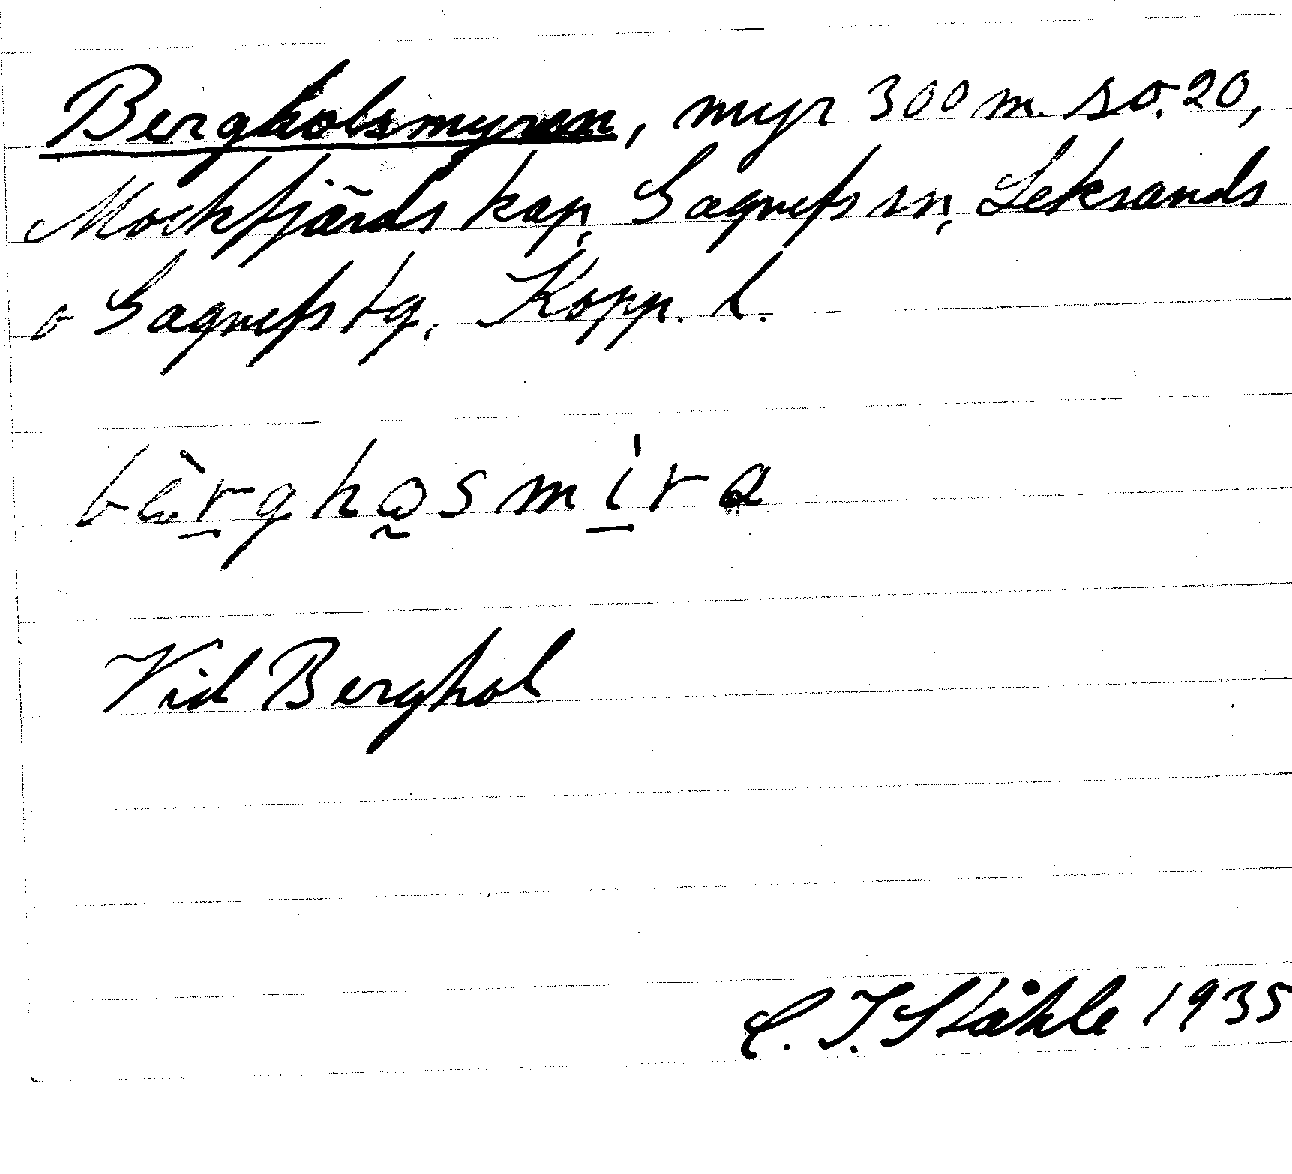 Bergholsmyren, myr 300 m. so. 20,
Mockfjärds kap, Gagnefs sn, Leksands
o Gagnefs tg, Kopp. l.
bærghǫsmira
Vid Berghol
C. I. Ståhle 1935